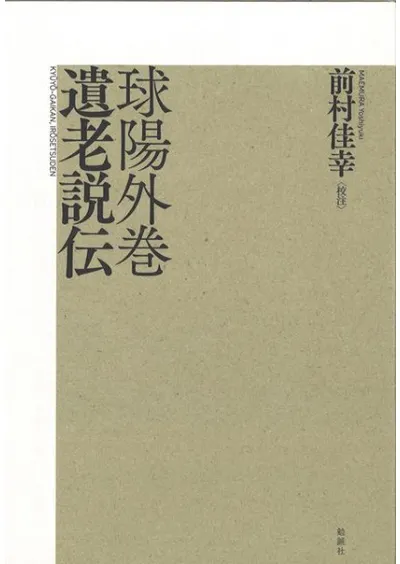 前村佳幸
〈校注〉
MAEMURA Yoshiyuki
球陽外巻
遺老説伝
KYŪYŌ-GAIKAN, IRŌSETSUDEN
勉誠社